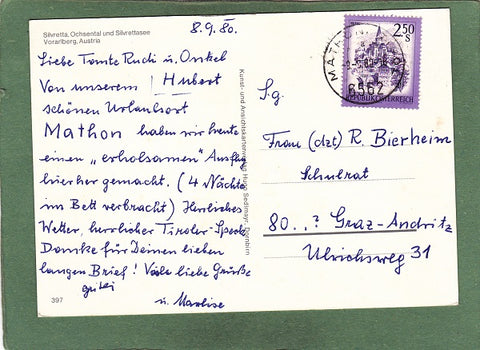 Silvretta, Ochsental und Silvrettasee
Vorarlberg, Austria
8.9.80.
Liebe Tante Rudi u. Onkel
Hubert
Von unserem
schönen Urlaubsort
Mathon haben wir heute
einen „erholsamen" Ausflug
hierher gemacht. (4 Nächte
im Bett verbracht) Herrliches
Wetter, herrlicher Tiroler-Speck
Danke für Deinen lieben
langen Brief! Viele liebe Grüße
u. Marlise
397
Kunst- und Ansichtskartenverlag
2.50
S
MATHON
6562
REPUBLIK ÖSTERREICH
S.g.
Frau (dzt) R. Bierheim
Schulrat
80..? Graz-Andritz
Ulrichsweg 31